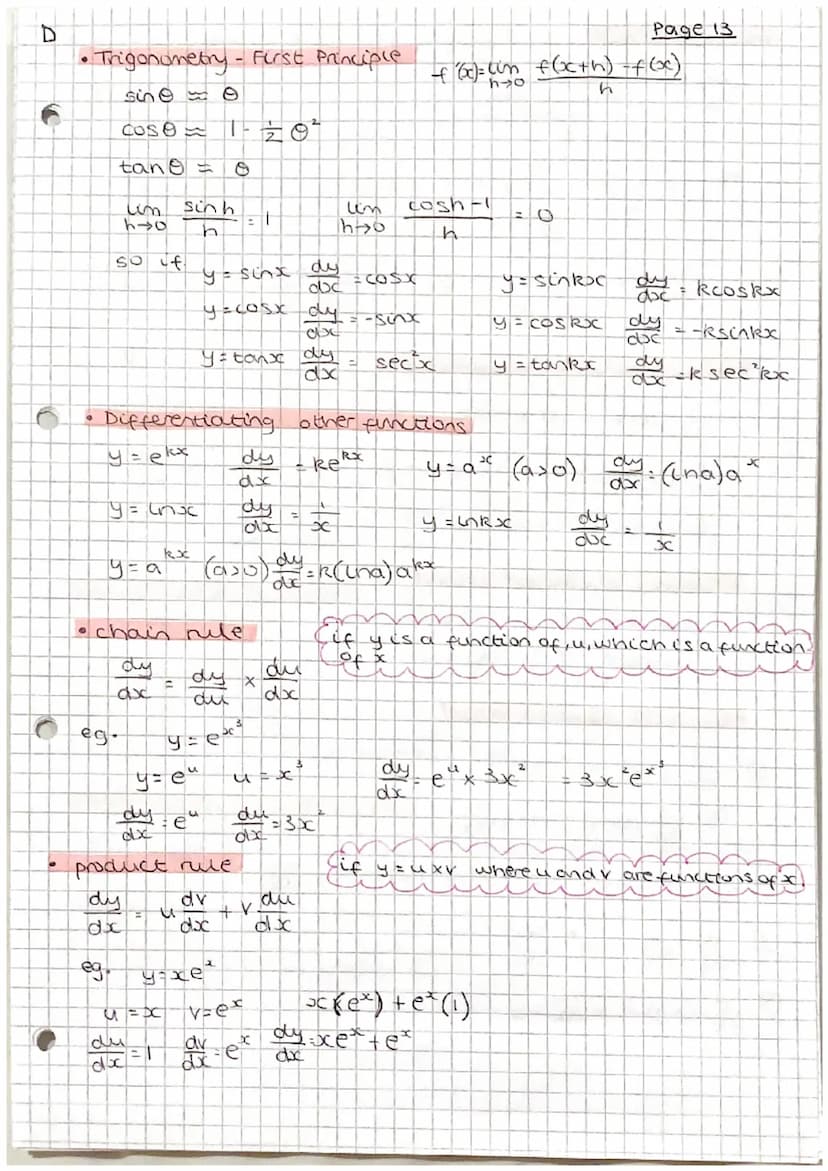 D Page 13
• Trigonometry - First Principle f'(x) = lim h→0 f(x+h) - f(x) / h
sinθ ≈ θ
cosθ ≈ 1 - ½θ²
tanθ ≈ θ
lim h→0 sinh / h = 1 lim h→0 cosh-1 / h = 0
so if y = sinx dy/dx = cosx y = sinkx dy/dx = kcoskx
y = cosx dy/dx = -sinx y = coskx dy/dx = -ksinkx
y = tanx dy/dx = sec²x y = tankx dy/dx = k sec²kx
• Differentiating other functions
y = e^kx dy/dx = ke^kx y = a^x (a>0) dy/dx = (lna)a^x
y = lnx dy/dx = 1/x y = lnkx dy/dx = 1/x
y = a^kx (a>0) dy/dx = k(lna)a^kx
• chain rule if y is a function of, u, which is a function
of x
dy/dx = dy/du × du/dx
eg. y = e^x³
y = e^u u = x³ dy/dx = e^u × 3x² = 3x²e^x³
dy/dx = e^u du/dx = 3x²
• product rule if y = u×v where u and v are functions of x.
dy/dx = u dv/dx + v du/dx
eg. y = xe^x
u = x v = e^x x(e^x) + e^x(1)
du/dx = 1 dv/dx = e^x dy/dx = xe^x + e^x